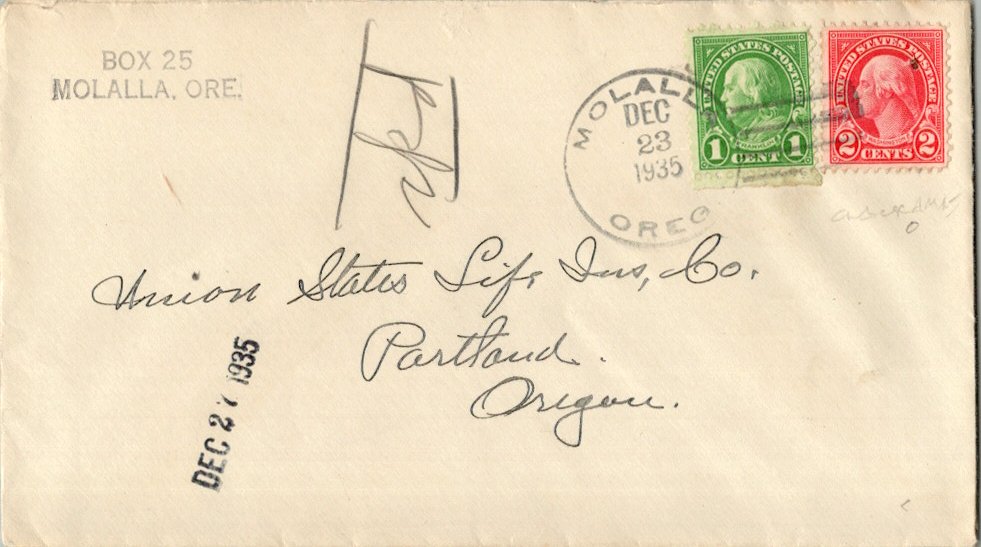 BOX 25
MOLALLA, ORE.
MOLALLA
DEC
23
1935
OREG
UNITED STATES POSTAGE
FRANKLIN
1 CENT 1
UNITED STATES POSTAGE
WASHINGTON
2 CENTS 2
Union States Life Ins, Co.
Portland.
Oregon.
DEC 27 1935